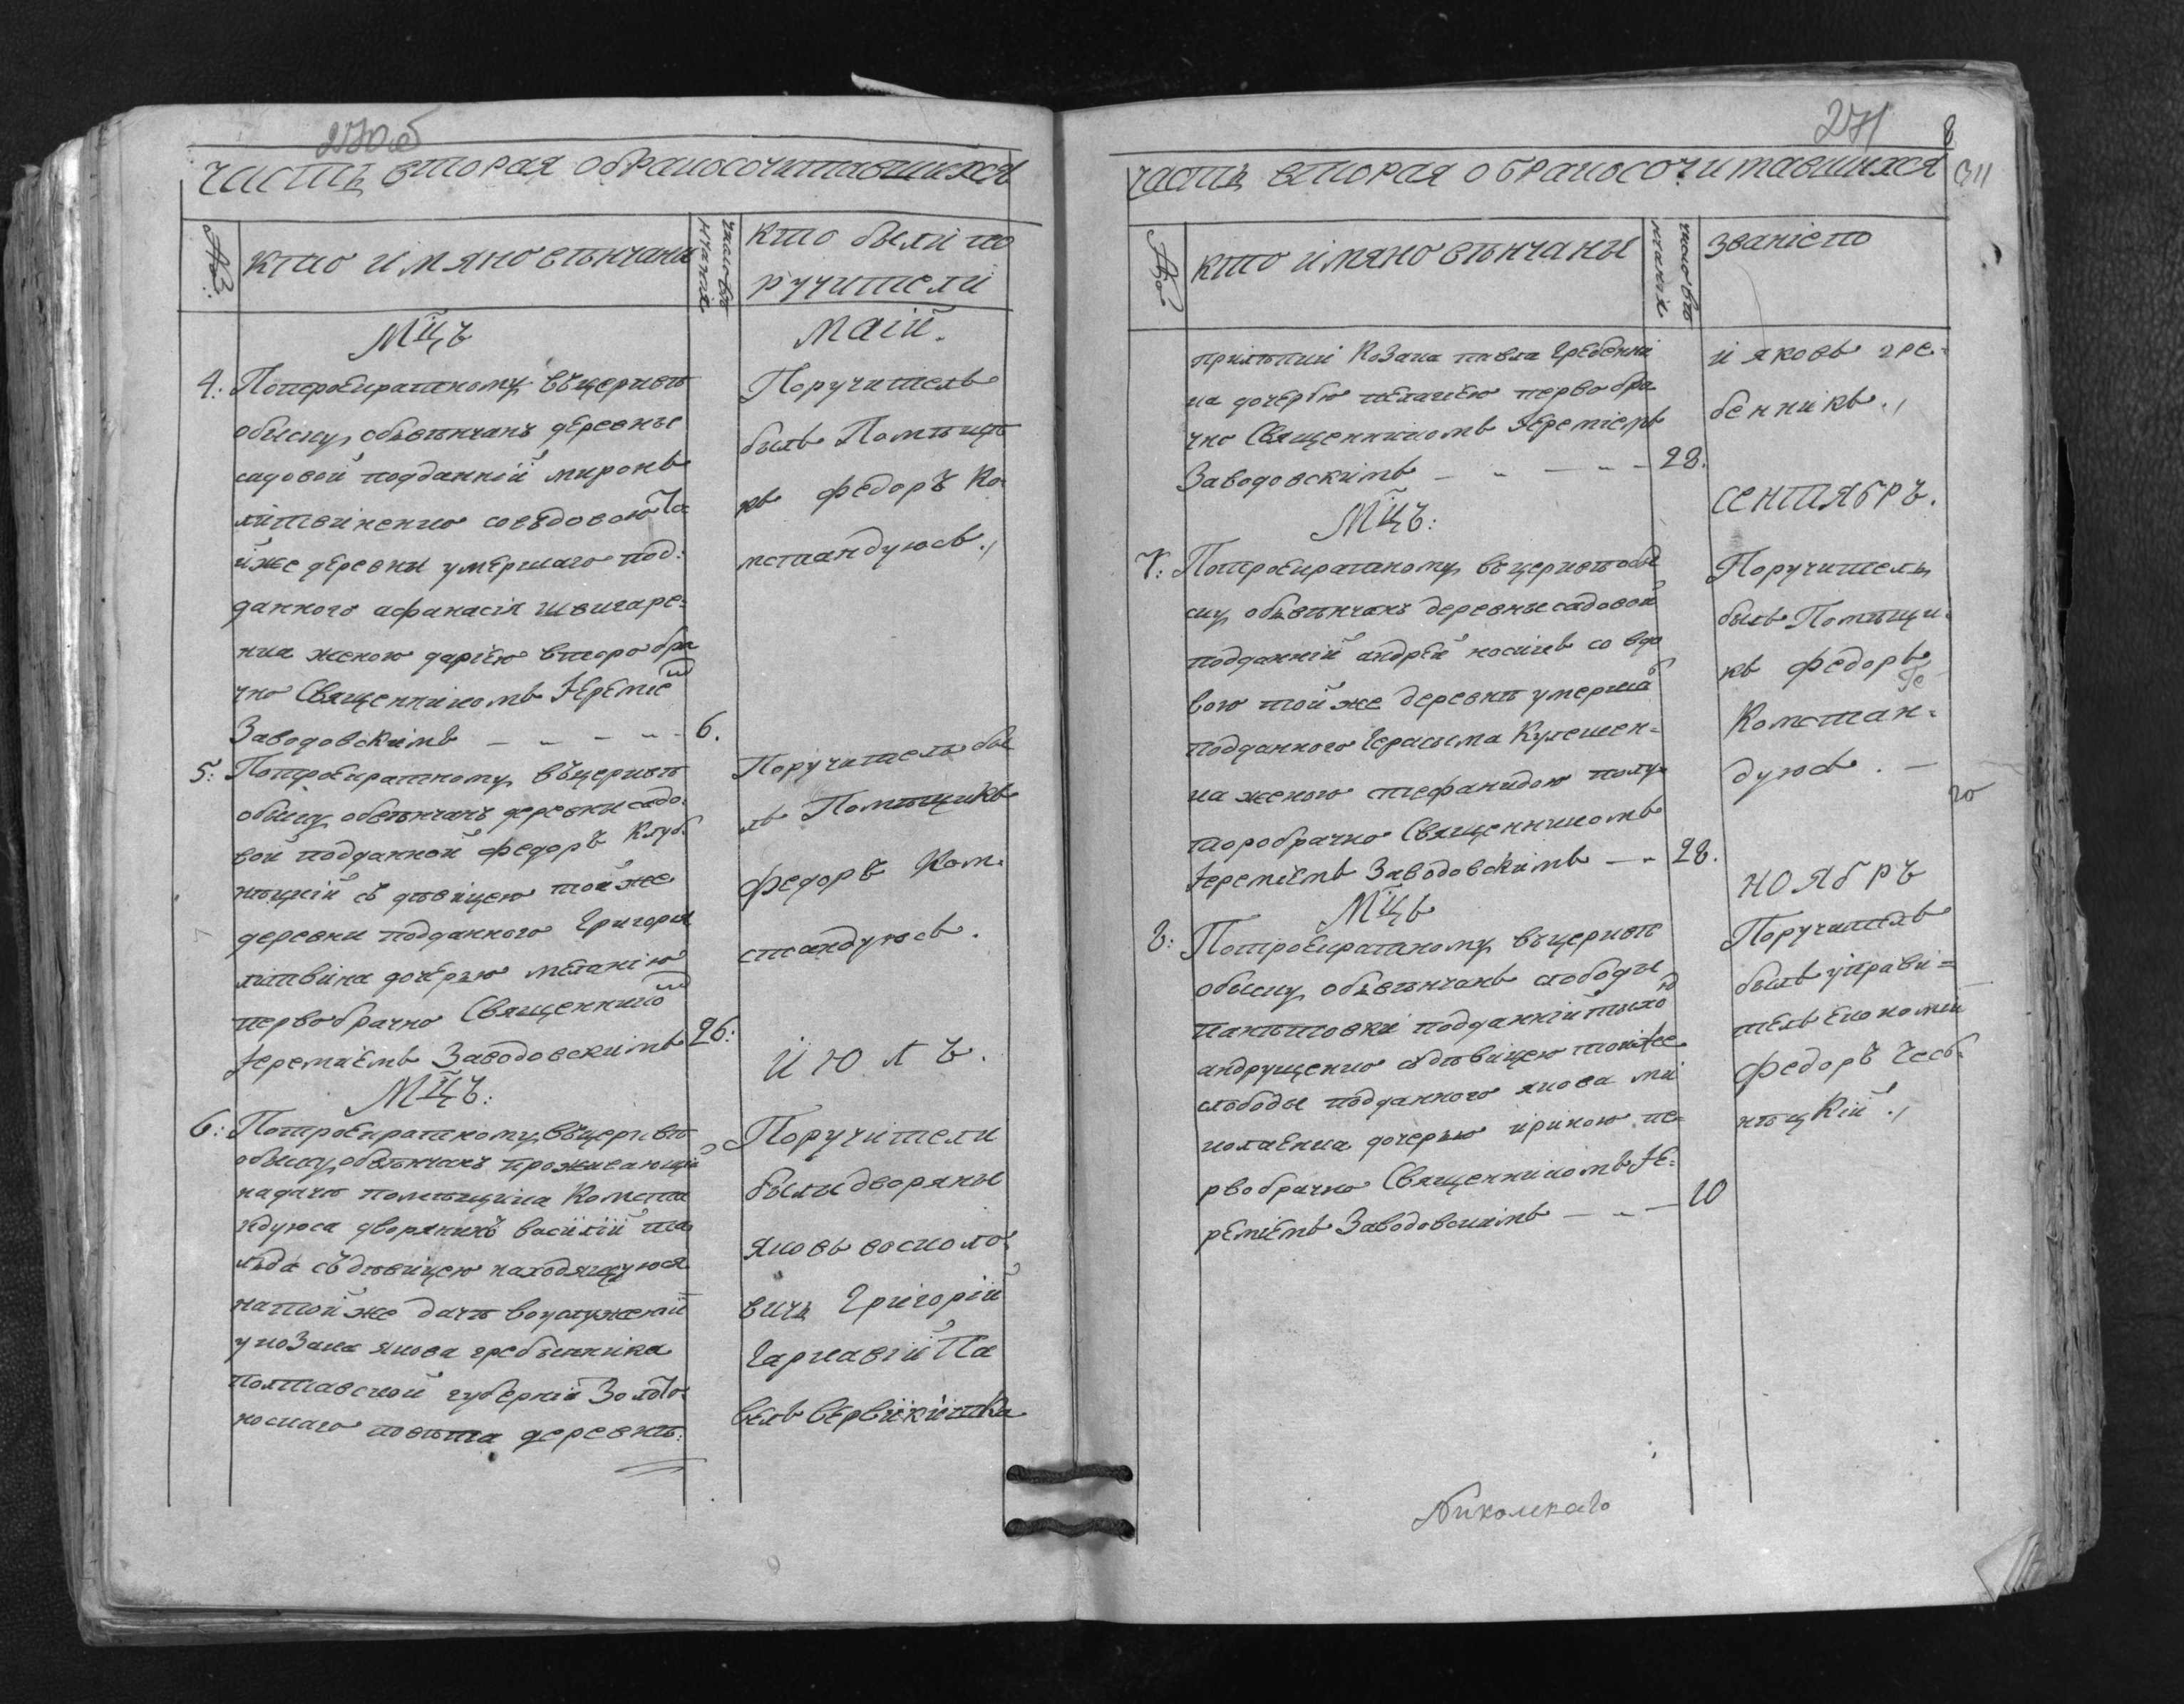 270об
часть вторая обракосочитавшихся
№:
кто имяно венчаны
число венчания
кто были по
ручители
Мцъ
маій.
4: Потроекратному въцерквѣ
обыску, обвѣнчанъ деревнѣ
садовой подданній миронъ
литвіненко совдовою то
йже деревни умершаго под:
данного афанасія швигаре:
нка женою даріею второбра
чно Священникомъ Іереміе
Заводовскимъ — „ — „ — 6.
Поручитель
былъ Помѣщи
къ федоръ Ко
мстандуюсъ.,
5: Потроекратному, въцерквѣ
обыску, обвѣнчанъ деревни садо:
вой подданной федоръ Клуб:
ницкій съ дѣвицею той же
деревни подданного Григорія
литвіна дочерью меланію
первобрачно Священнико
Іереміемъ Заводовскимъ 26:
Поручитель бы
лъ Помѣщикъ
федоръ Ком:
стандуюсъ.
Мцъ:
Июлъ.
6: Потроекратному, въцерквѣ
обыску, обвѣнчанъ проживающій
надачѣ помѣщика Комста
ндуюса дворянинъ василій
съдѣвицею находящуюся
натой же дачѣ воуслуженіи
укозака якова гребѣнника
полтавской губерніи Золото:
носкаго повѣта деревнѣ:
Поручители
были дворяны
яковъ
вичъ Григорій
Па
велъ
271
8
311
часть вторая обракосочитавшихся
№
кто имяно венчаны
число венчания
званіе по
козака павла Гребенни
ка дочерью пелагіею первобра
чно Священникомъ Іереміемъ
Заводовскимъ — „ — „ — 28.
и яковъ гре:
бенникъ.,
Мцъ:
сентябръ.
7: Потроекратному, въцерквѣ обы
ску, обвѣнчанъ деревнѣ садовой
подданній андрей носачевъ со вдо
вою той же деревнѣ умерша
подданного Герасима Кулешен:
ка женою стефанидою полу
торобрачно Священникомъ
Іереміемъ Заводовскимъ — „ 28.
Поручитель
былъ Помѣщи:
къ федоръ
Комстан:
дуюсъ. —
Мцъ
ноябръ
8: Потроекратному, въцерквѣ
обыску, обвѣнчанъ слободы
подданній тихо
андрущенко съдѣвицею тойже
слободы подданного якова ми
колаенка дочерью ириною пе:
рвобрачно Священникомъ Іе:
реміемъ Заводовскимъ — „ — 10
Поручитель
былъ управи=
тель економій
федоръ Чесб
ницкій.,